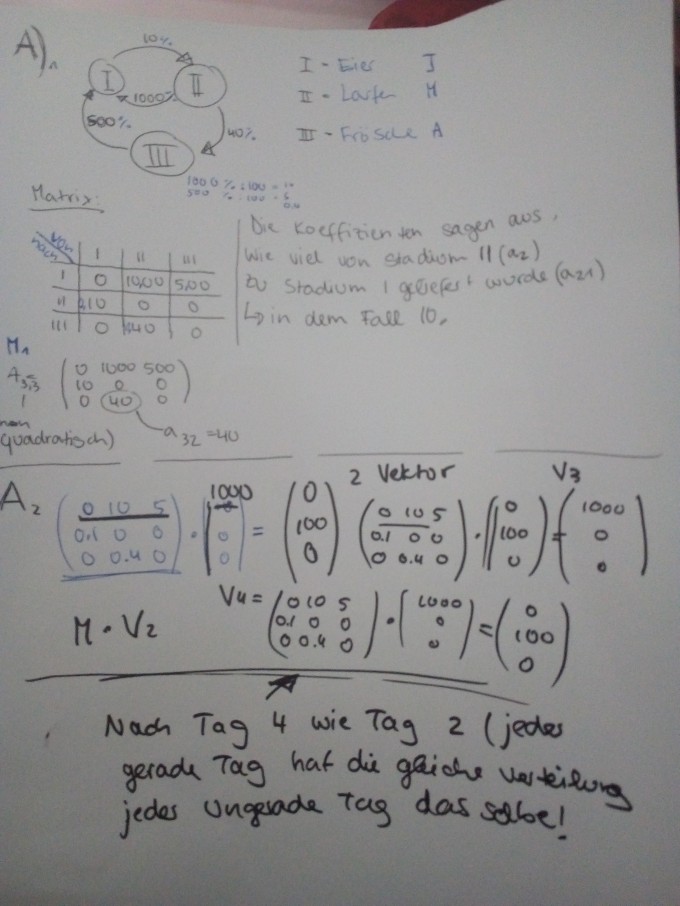 A)1
10%
I
II
1000%
500%
40%
III
I - Eier J
II - Larfen M
III - Frösche A
1000 % : 100 = 10
500 % : 100 = 5
0.4
Matrix:
von
nach
I II III
I 0 1000 500
II 0 0
III 0 40 0
Die Koeffizienten sagen aus,
wie viel von Stadium II (a2)
zu Stadium I geliefert wurde (a21)
↳ in dem Fall 10.
M1
A3,3 = ( 0 1000 500
10 0 0
0 40 0 )
a32 = 40
quadratisch)
A2 ( 0 10 5
0.1 0 0
0 0.4 0 ) · ( 1000
0
0 ) = ( 0
100
0 )
2 Vektor
( 0 10 5
0.1 0 0
0 0.4 0 ) · ( 0
100
0 ) =
V3
( 1000
0
0 )
M · V2
V4 = ( 0 10 5
0.1 0 0
0 0.4 0 ) · ( 1000
0
0 ) = ( 0
100
0 )
Nach Tag 4 wie Tag 2 (jedes
gerade Tag hat die gleiche verteilung
jedes ungerade Tag das selbe!